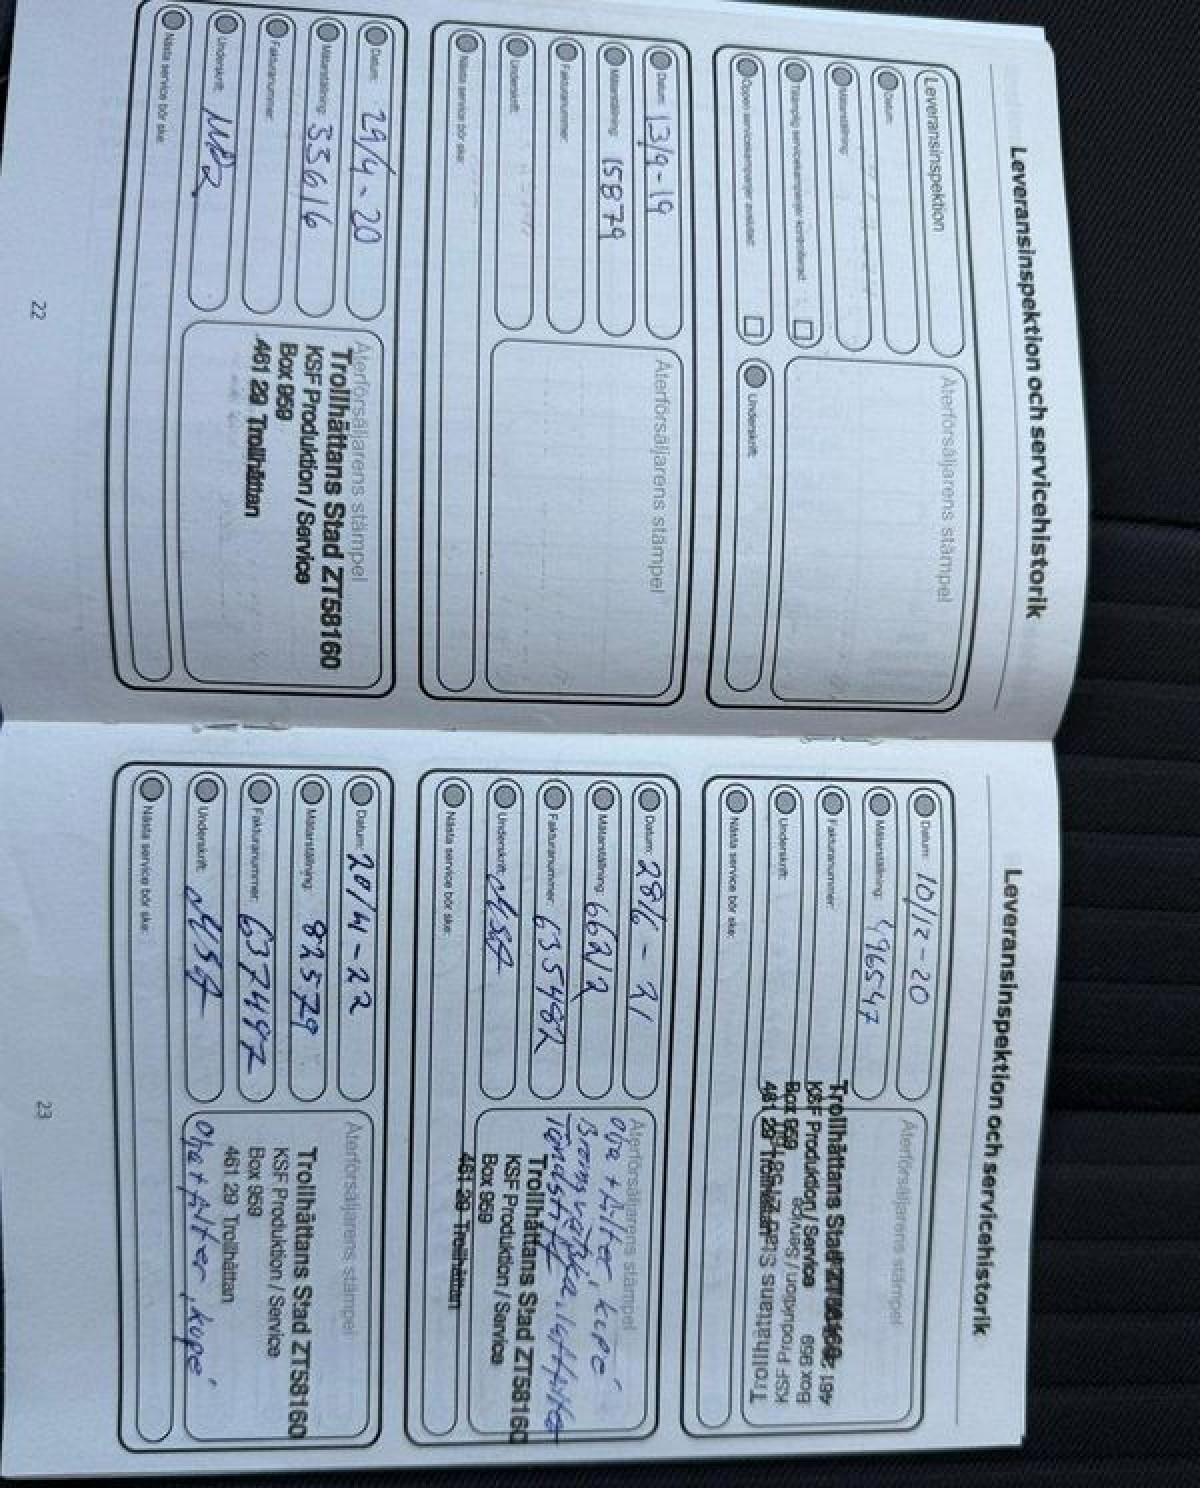 Leveransinspektion och servicehistorik
Leveransinspektion
Datum:
Mätarställning:
Tillämplig servicekampanjer kontrollerad:
Öppen servicekampanjer avslutad:
Återförsäljarens stämpel
Underskrift:
Datum: 13/9-19
Mätarställning: 15879
Fakturanummer:
Underskrift:
Nästa service bör ske:
Återförsäljarens stämpel
Datum: 29/4-20
Mätarställning: 33616
Fakturanummer:
Underskrift:
Nästa service bör ske:
Återförsäljarens stämpel
Trollhättans Stad ZT58160
KSF Produktion / Service
Box 959
461 29 Trollhättan
22
Leveransinspektion och servicehistorik
Datum: 10/12-20
Mätarställning: 496547
Fakturanummer:
Underskrift:
Nästa service bör ske:
Återförsäljarens stämpel
Trollhättans Stad ZT58160
KSF Produktion / Service
Box 959
461 29 Trollhättan
Datum: 28/6-21
Mätarställning: 66212
Fakturanummer: 635482
Underskrift: MSA
Nästa service bör ske:
Återförsäljarens stämpel
Olja + filter, kupé
Bromsvätska, luftfilter
Tändstift
Trollhättans Stad ZT58160
KSF Produktion / Service
Box 959
461 29 Trollhättan
Datum: 20/4-22
Mätarställning: 82579
Fakturanummer: 637497
Underskrift: MSA
Nästa service bör ske:
Återförsäljarens stämpel
Trollhättans Stad ZT58160
KSF Produktion / Service
Box 959
461 29 Trollhättan
Olja + filter, kupé
23